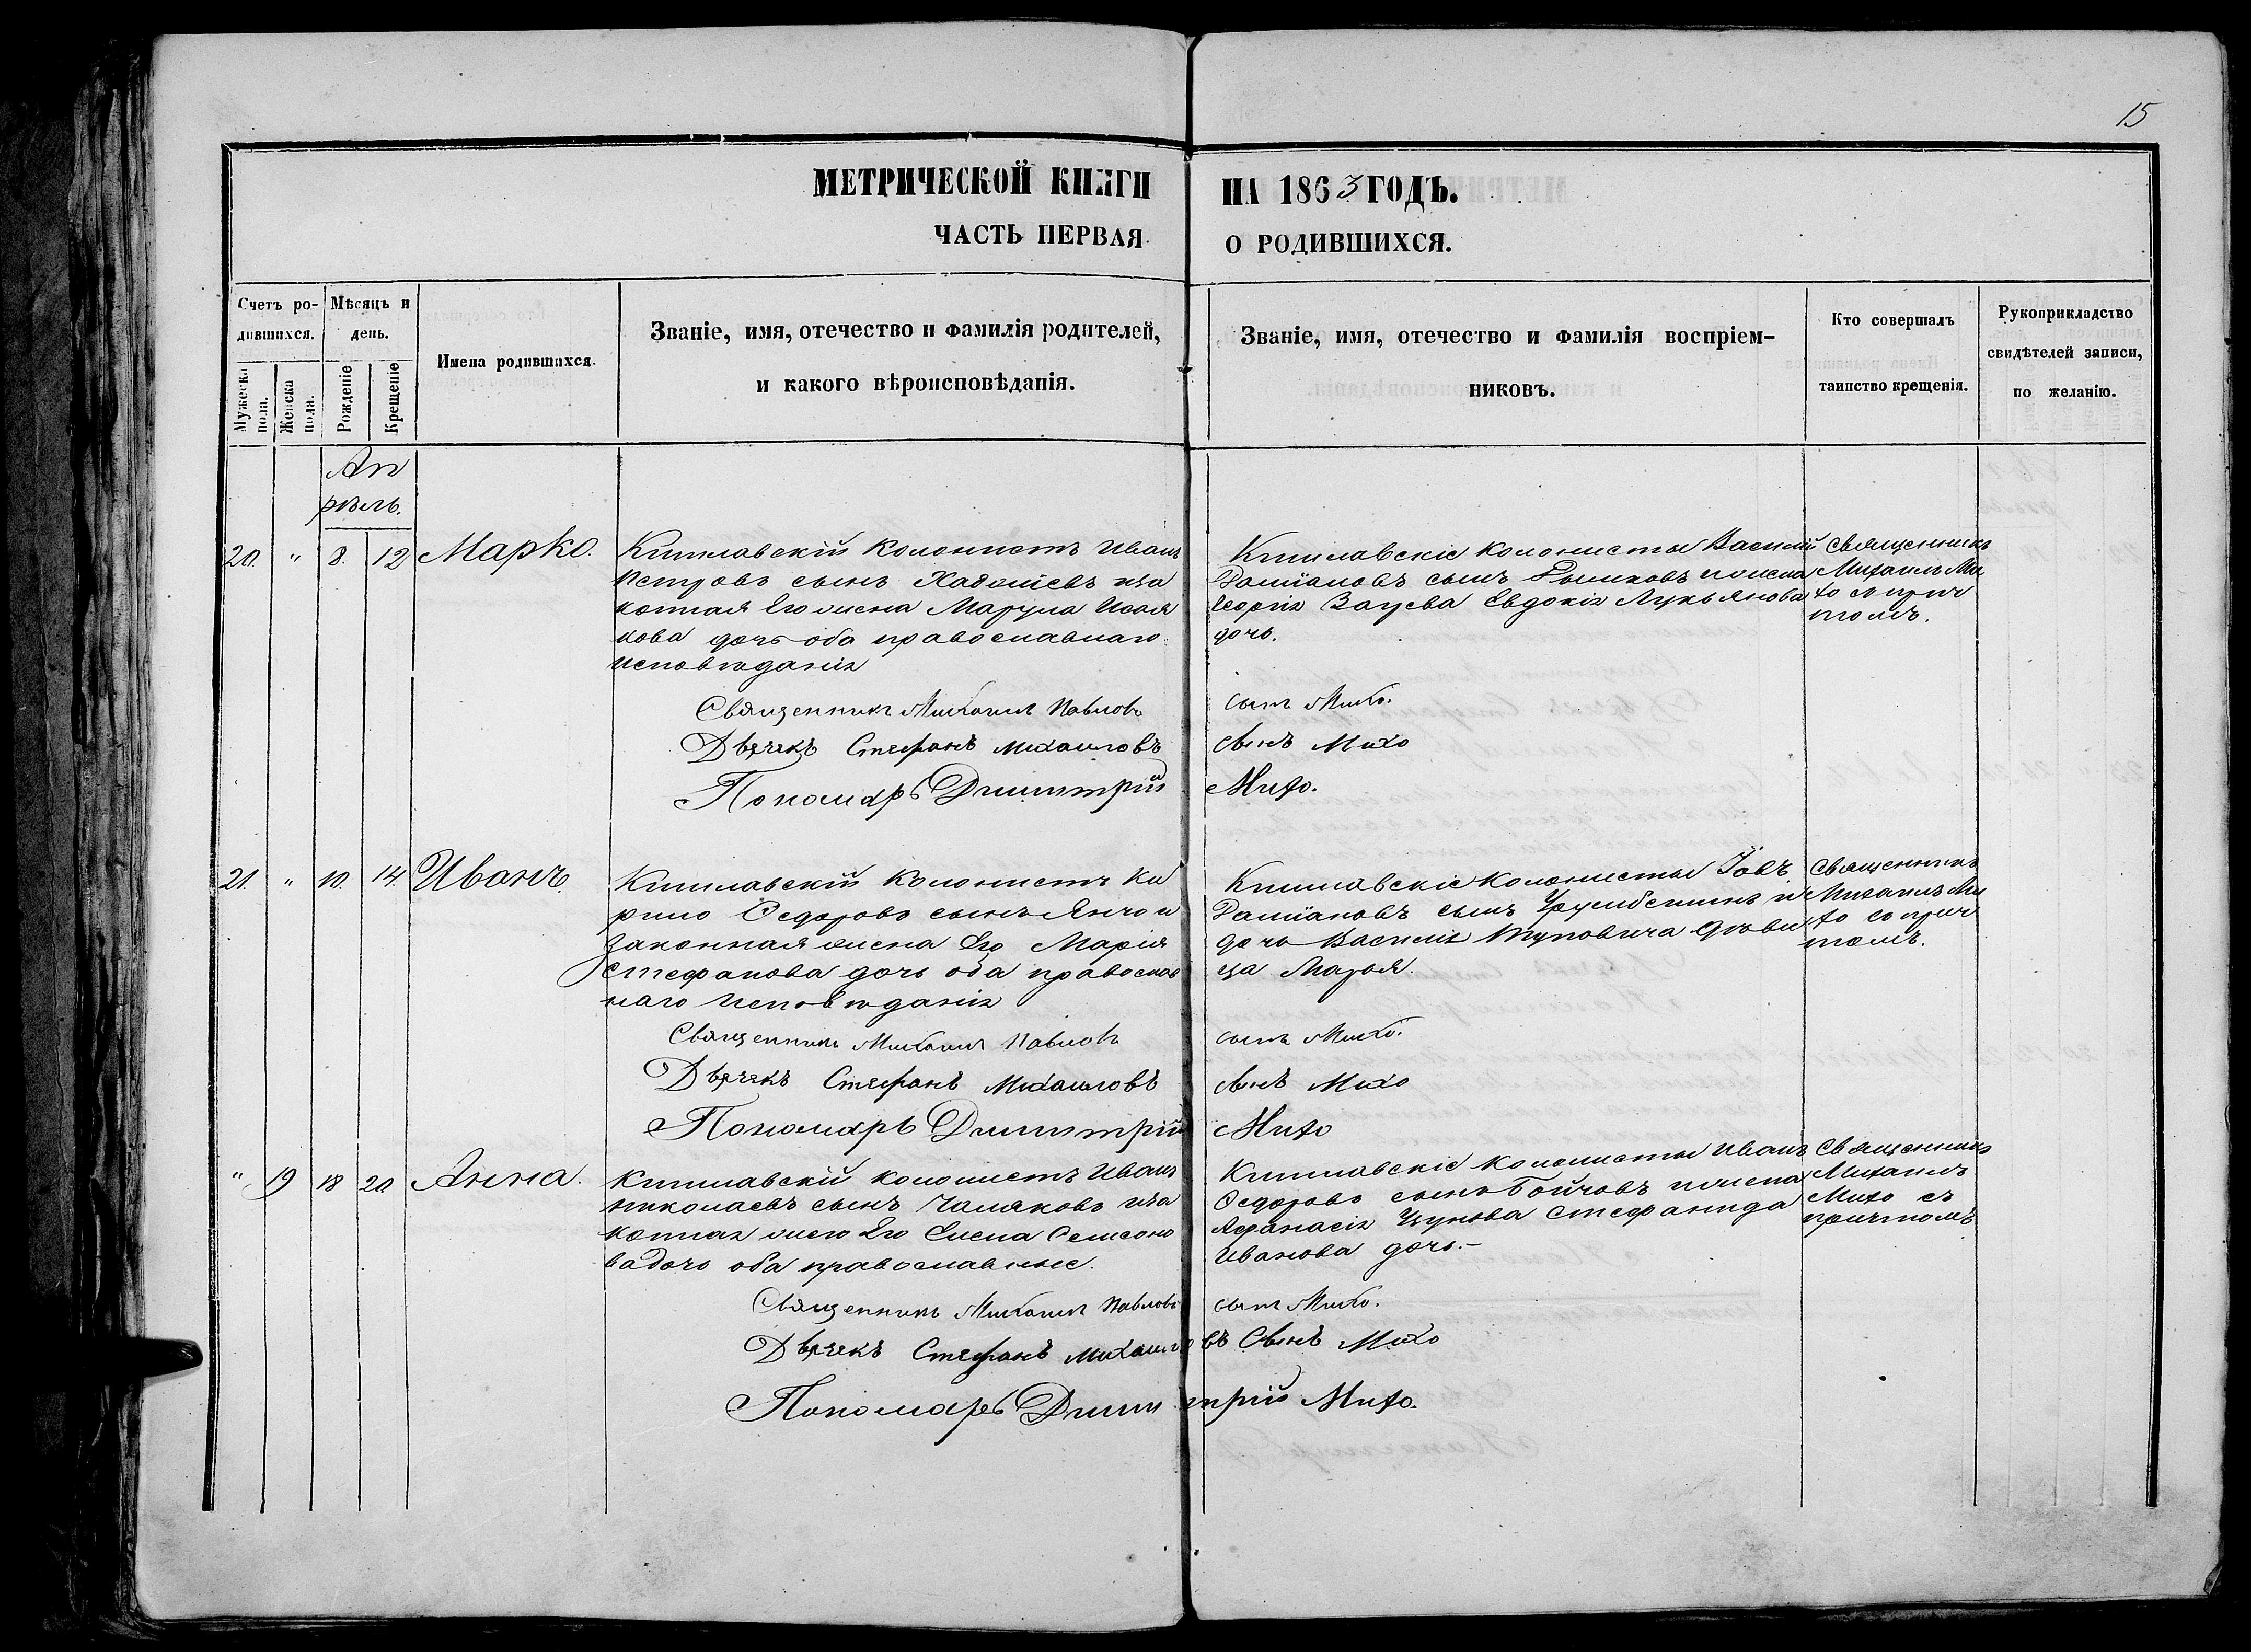 15
МЕТРИЧЕСКОЙ КНИГИ НА 1863 ГОДЪ.
ЧАСТЬ ПЕРВАЯ О РОДИВШИХСЯ.
Счетъ родившихся.
Мужеска пола.
Женска пола.
Мѣсяцъ и день.
Рожденіе
Крещеніе
Имена родившихся.
Званіе, имя, отечество и фамилія родителей,
и какого вѣроисповѣданія.
Званіе, имя, отечество и фамилія воспріем-
никовъ.
Кто совершалъ
таинство крещенія.
Рукоприкладство
свидѣтелей записи,
по желанію.
Ап
рѣль.
20. " 8. 12 Марко.
Кишлавскій колонистъ Иванъ
Петровъ сынъ иза
конная Его жена Марула
кова дочь оба православнаго
исповѣданія
Кишлавскіе колонисты Василій
Даміановъ сынъ ижена
Георгія Евдокія Лукьянова
дочь.
Священникъ
Михаилъ Ми
хо сприч
томъ.
Священникъ Михаилъ Павловъ сынъ Михо.
Дьячекъ Стефанъ Михаиловъ сынъ Михо
Пономарь Димитрій Михо.
21. " 10. 14. Иванъ.
Кишлавскій Колонистъ Ки
рило Ѳедоровъ сынъ Янчо и
Законная жена Его Марія
Стефанова дочь оба православ
наго Исповѣданія
Кишлавскіе Колонисты Іовъ
Даміановъ сынъ и
дочь Василія дѣви
ца Марья.
Священникъ
Михаилъ Ми
хо со прич
томъ.
Священникъ Михаилъ Павловъ сынъ Михо.
Дьячекъ Стефанъ Михаиловъ сынъ Михо
Пономарь Димитрій Михо
" 19 18 20 Анна.
Кишлавскій колонистъ Иванъ
Николаевъ сынъ Чамяковъ иза
конная жена Его Елена Семеоно
ва дочь оба православные.
Кишлавскіе колонисты Иванъ
Ѳедоровъ сынъ Бойчовъ ижена
Афанасія Стефанида
Иванова дочь.-
Священникъ
Михаилъ
Михо съ
причтомъ
Священникъ Михаилъ Павловъ сынъ Михо.
Дьячекъ Стефанъ Михаиловъ Сынъ Михо
Пономарь Димитрій Михо.